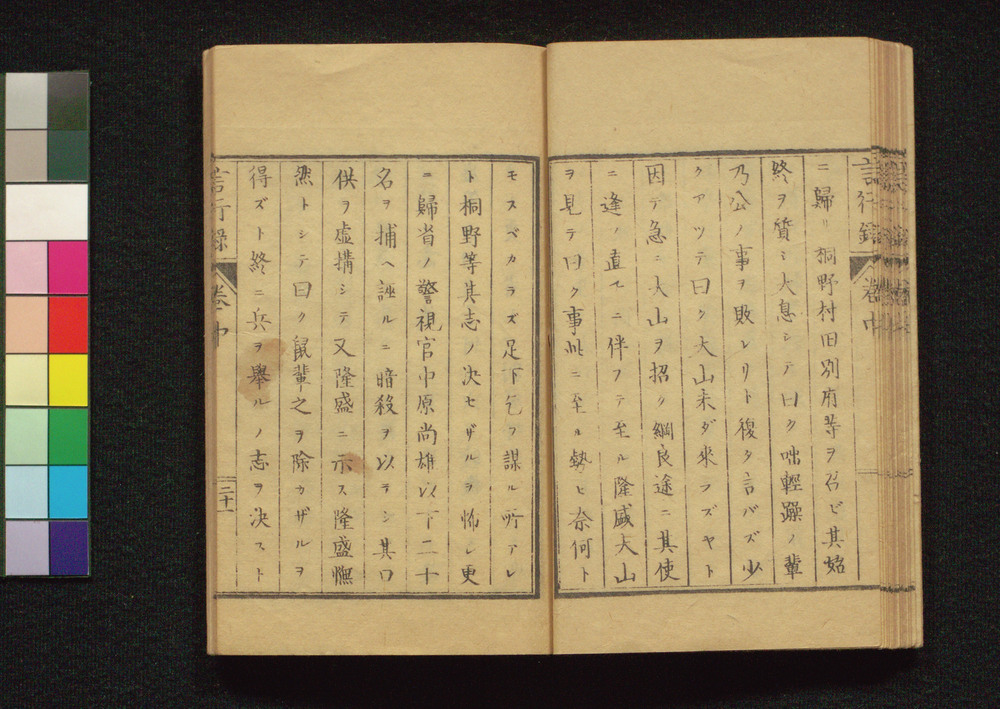 言行録 卷中
ニ歸 桐野村田別府等ヲ召ビ其始
終ヲ質シ大息シテ曰ク咄輕躁ノ輩
乃公ノ事ヲ敗レリト復タ言バズ少
クアツテ曰ク大山未ダ來ラズヤト
因テ急ニ大山ヲ招ク綱良途ニ其使
ニ逢ノ直チニ伴フテ至ル隆盛大山
ヲ見テ曰ク事此ニ至ル勢ヒ奈何ト
モスベカラズ足下乞フ謀ル所アレ
ト桐野等其志ノ决セザルヲ怖レ更
ニ歸省ノ警視官中原尚雄以下二十
名ヲ捕ヘ誣ルニ暗殺ヲ以テシ其口
供ヲ虚搆シテ又隆盛ニ示ス隆盛憮
然トシテ曰ク鼠輩之ヲ除カザルヲ
得ズト終ニ兵ヲ舉ルノ志ヲ决スト
言行録 卷中 二十一